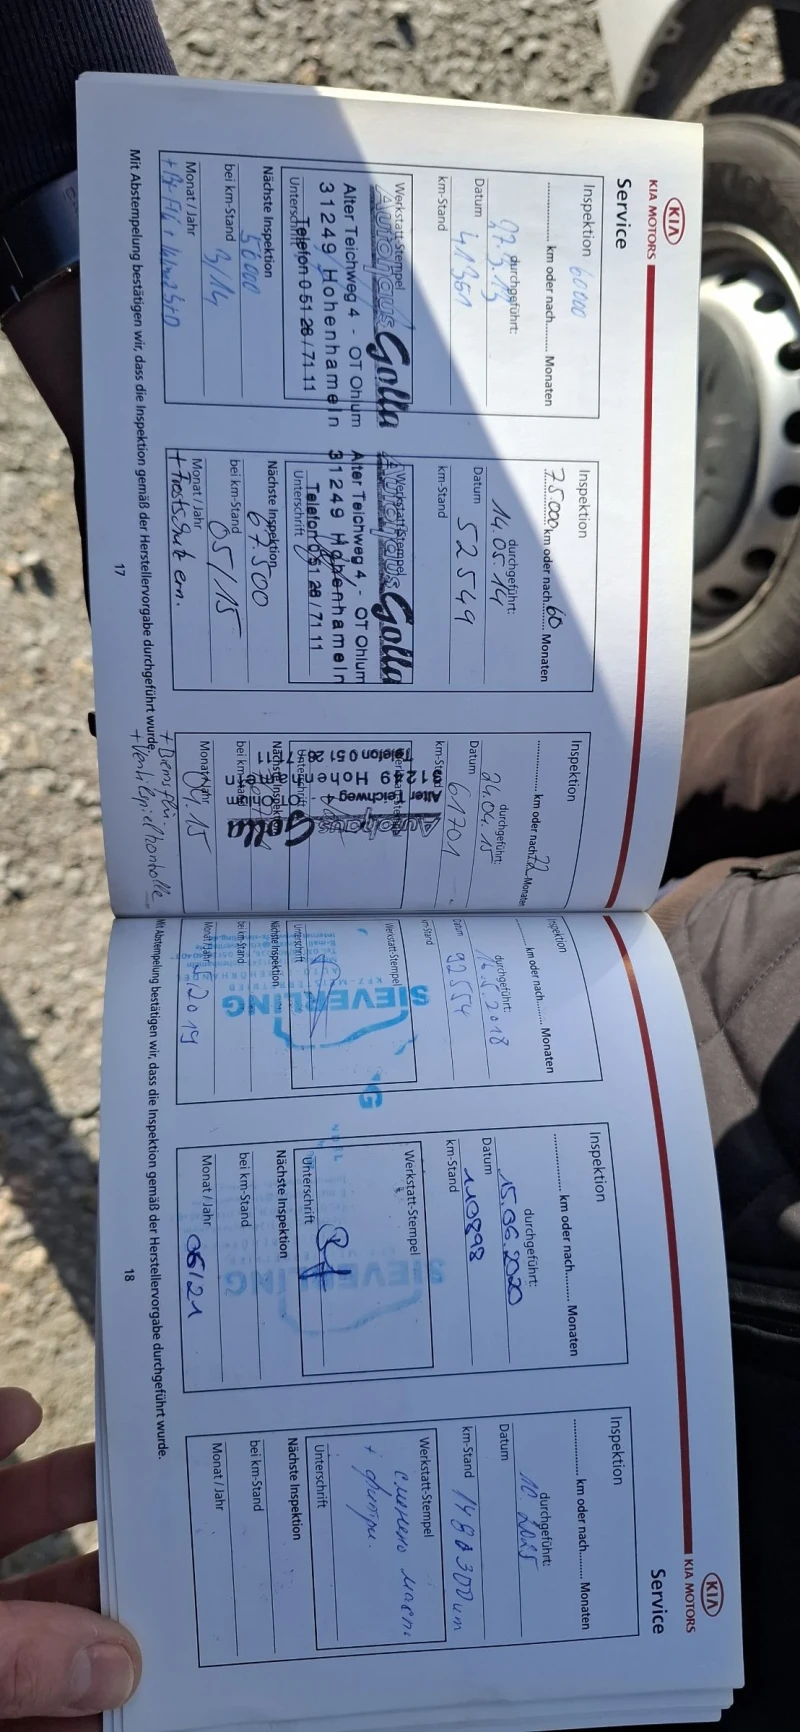 KIA
KIA MOTORS
Service
Inspektion 60000
............ km oder nach............ Monaten
durchgeführt:
27.3.13
Datum
41361
km-Stand
Werkstatt-Stempel
Autohaus Golla
Alter Teichweg 4 - OT Ohlum
31249 Hohenhameln
Telefon 0 51 28 / 71 11
Unterschrift
Nächste Inspektion
50000
bei km-Stand
3/14
Monat / Jahr
Inspektion
75.000 km oder nach 60 Monaten
durchgeführt:
14.05.14
Datum
52549
km-Stand
Werkstatt-Stempel
Autohaus Golla
Alter Teichweg 4 - OT Ohlum
31249 Hohenhameln
Telefon 0 51 28 / 71 11
Unterschrift
Nächste Inspektion
67.500
bei km-Stand
05/15
Monat / Jahr
+ Frostschutz ern.
Inspektion
............ km oder nach 72 Monaten
durchgeführt:
24.04.15
Datum
61701
km-Stand
Werkstatt-Stempel
Autohaus Golla
Alter Teichweg 4
Telefon 0 51 28 / 71 11
Unterschrift
Nächste Inspektion
bei km-Stand
Monat / Jahr
+ Ventilspielkontrolle
Mit Abstempelung bestätigen wir, dass die Inspektion gemäß der Herstellervorgabe durchgeführt wurde.
17
KIA
KIA MOTORS
Service
Inspektion
............ km oder nach............ Monaten
durchgeführt:
16.5.2018
Datum
92554
km-Stand
Werkstatt-Stempel
SIEVERLING
Unterschrift
Nächste Inspektion
bei km-Stand
Monat / Jahr
5/2019
Inspektion
............ km oder nach............ Monaten
durchgeführt:
15.06.2020
Datum
110898
km-Stand
Werkstatt-Stempel
SIEVERLING
Unterschrift
Nächste Inspektion
bei km-Stand
Monat / Jahr
06/21
Inspektion
............ km oder nach............ Monaten
durchgeführt:
10.2025
Datum
km-Stand
Werkstatt-Stempel
сменено масло
+ филтри.
Unterschrift
Nächste Inspektion
bei km-Stand
Monat / Jahr
Mit Abstempelung bestätigen wir, dass die Inspektion gemäß der Herstellervorgabe durchgeführt wurde.
18